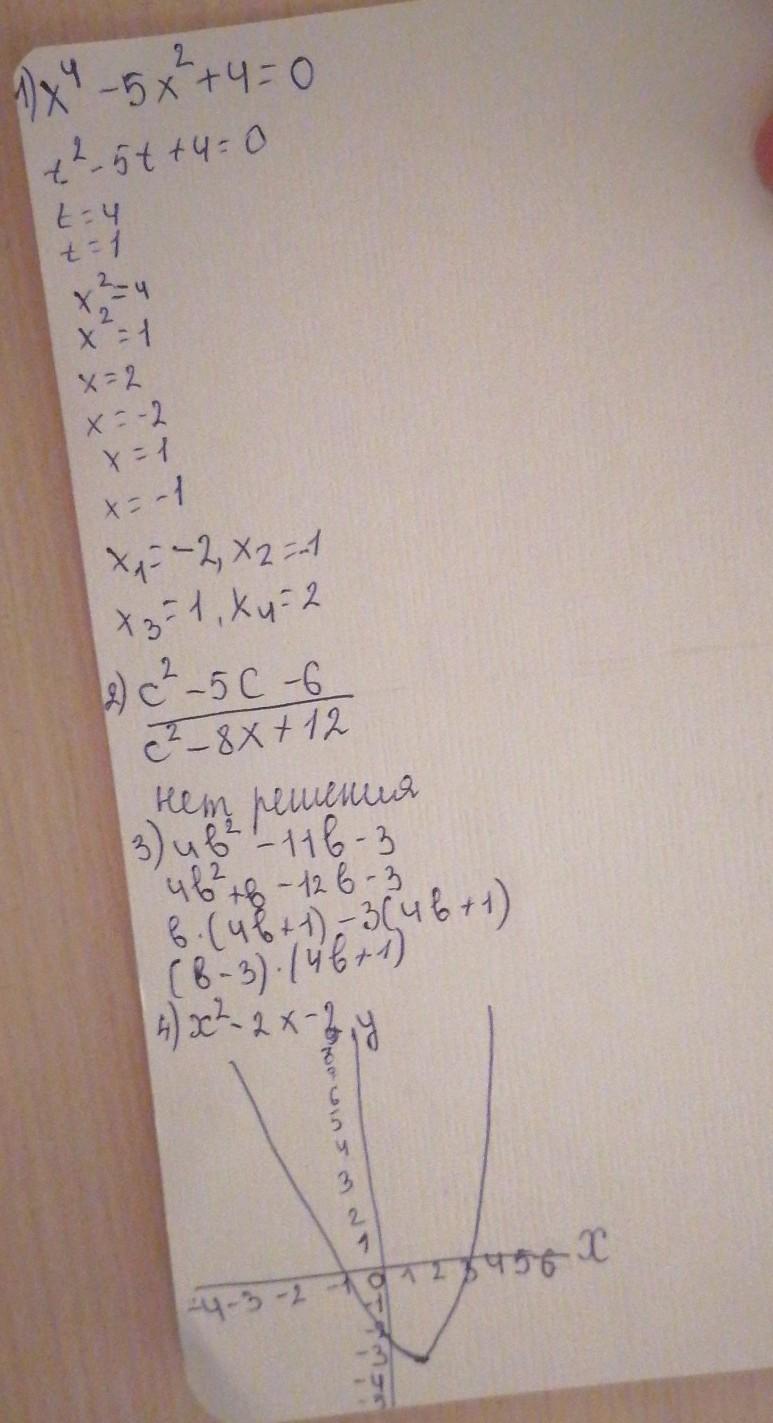 1) x⁴ - 5x² + 4 = 0
t² - 5t + 4 = 0
t = 4
t = 1
x² = 4
x² = 1
x = 2
x = -2
x = 1
x = -1
x₁ = -2, x₂ = -1
x₃ = 1, x₄ = 2
2) c² - 5c - 6
c² - 8x + 12
нет решения
3) 4b² - 11b - 3
4b² + b - 12b - 3
b·(4b+1) - 3(4b+1)
(b-3)·(4b+1)
4) x² - 2x - 2
y
8
6
5
4
3
2
1
x
-4 -3 -2 -1 0 1 2 3 4 5 6
-1
-3
-4